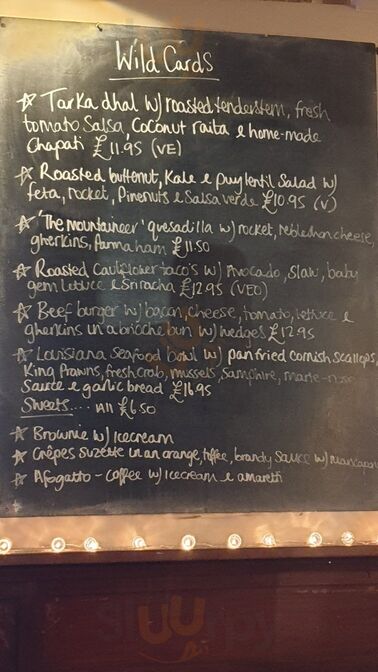 Wild Cards
☆ Tarka dhal w) roasted tenderstem, fresh
tomato Salsa, Coconut raita & home-made
Chapati £11.95 (VE)
☆ Roasted butternut, Kale & puy lentil Salad w)
feta, rocket, Pinenuts & Salsa verde £10.95 (V)
☆ 'The mountaineer' quesadilla w) rocket, reblochon cheese,
gherkins, Parma ham £11.50
☆ Roasted Cauliflower taco's w) Avocado, Slaw, baby
gem lettuce & Sriracha £12.95 (VEO)
☆ Beef burger w) bacon, cheese, tomato, lettuce &
gherkins in a brioche bun w) wedges £12.95
☆ Louisiana Seafood bowl w) pan fried cornish scallops,
King Prawns, fresh crab, mussels, Samphire, marie-rose
Sauce & garlic bread £16.95
Sweets.... all £6.50
☆ Brownie w) icecream
☆ Crêpes suzette in an orange, toffee, brandy Sauce w)
☆ Afogatto - coffee w) icecream & amaretti